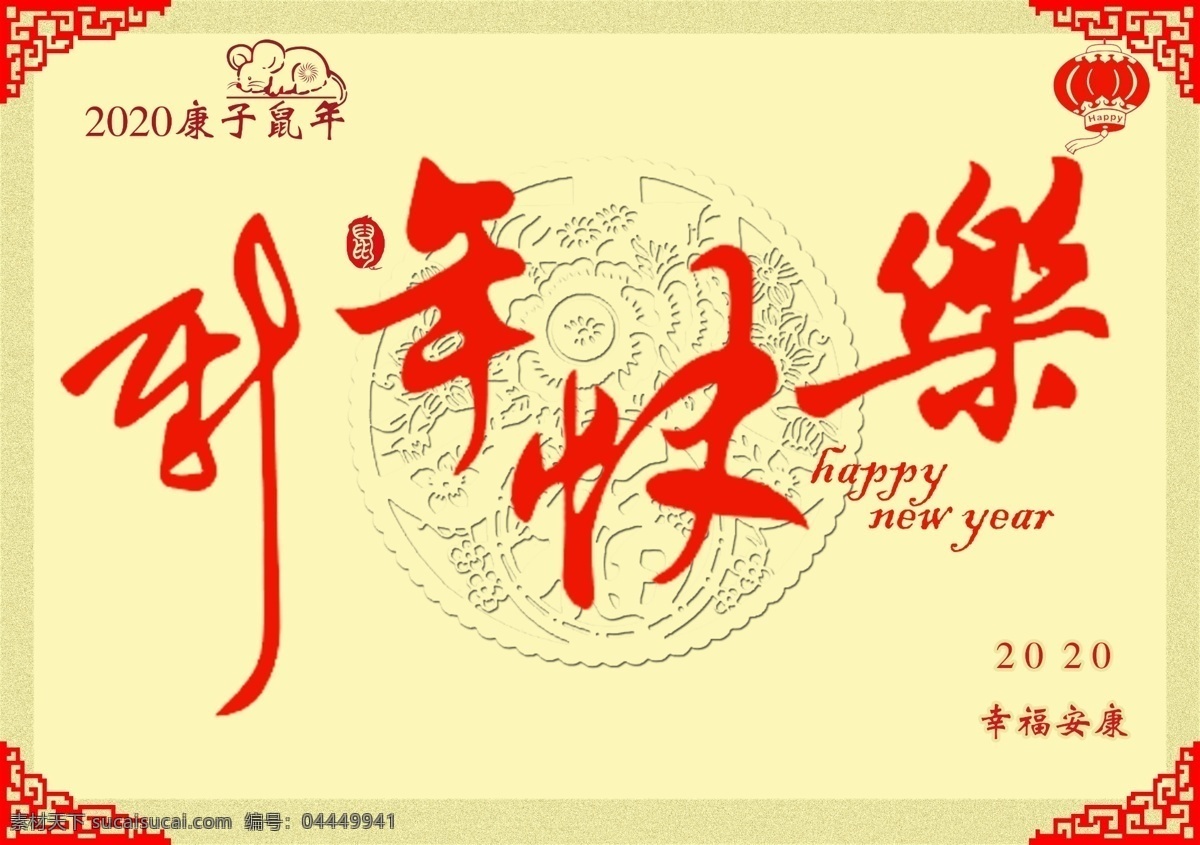 2020康子鼠年
Happy
鼠
新年快樂
happy
new year
20 20
幸福安康
素材天下 sucaisucai.com 编号：04449941